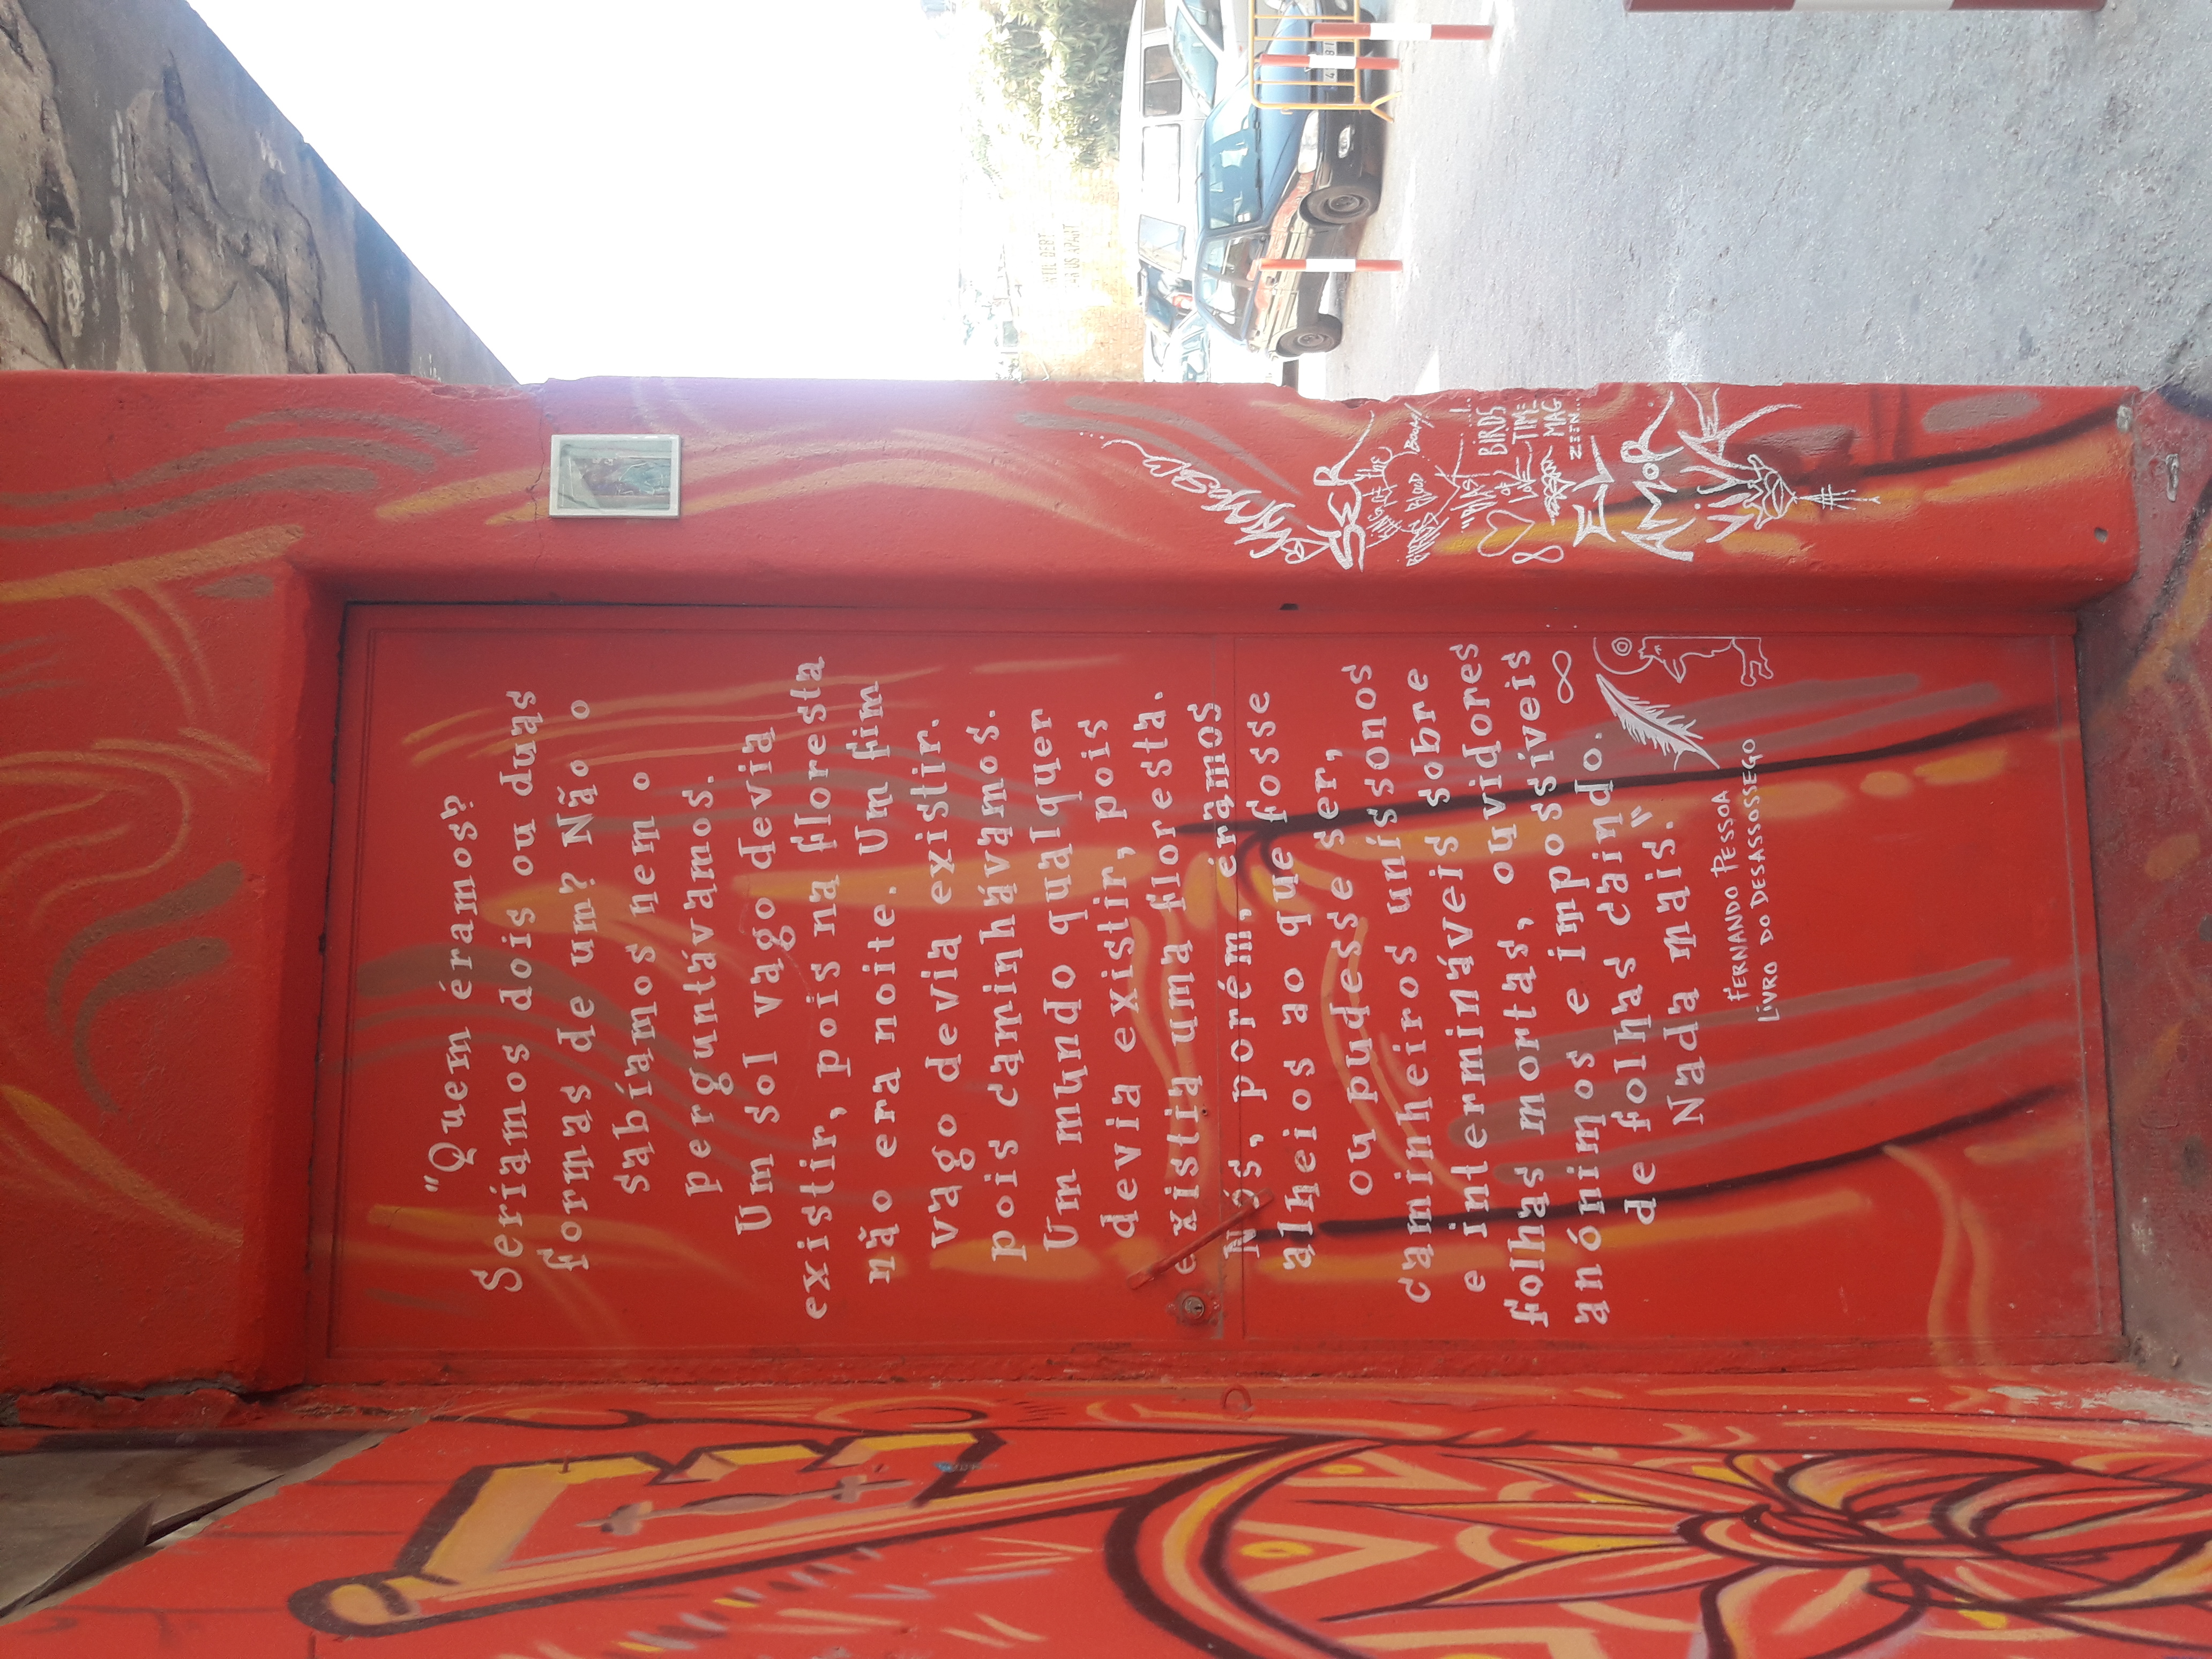 "Quem éramos?
Seríamos dois ou duas
formas de um? Não o
sabíamos nem o
perguntávamos.
Um sol vago devia
existir, pois na floresta
não era noite. Um fim
vago devia existir.
pois caminhávamos.
Um mundo qualquer
devia existir, pois
existia uma floresta.
Nós, porém, éramos
alheios ao que fosse
ou pudesse ser,
caminheiros uníssonos
e intermináveis sobre
folhas mortas, ouvidores
anónimos e impossíveis
de folhas caindo.
Nada mais."
FERNANDO PESSOA
LIVRO DO DESASSOSSEGO
SER
KING of the
BIRDS BLOOD BOOM!
"BLAST
OF
LOVE
BIRDS
TIME
MAG
ZEEN...
EL
AMOR
VIVE
DEBT
US APART